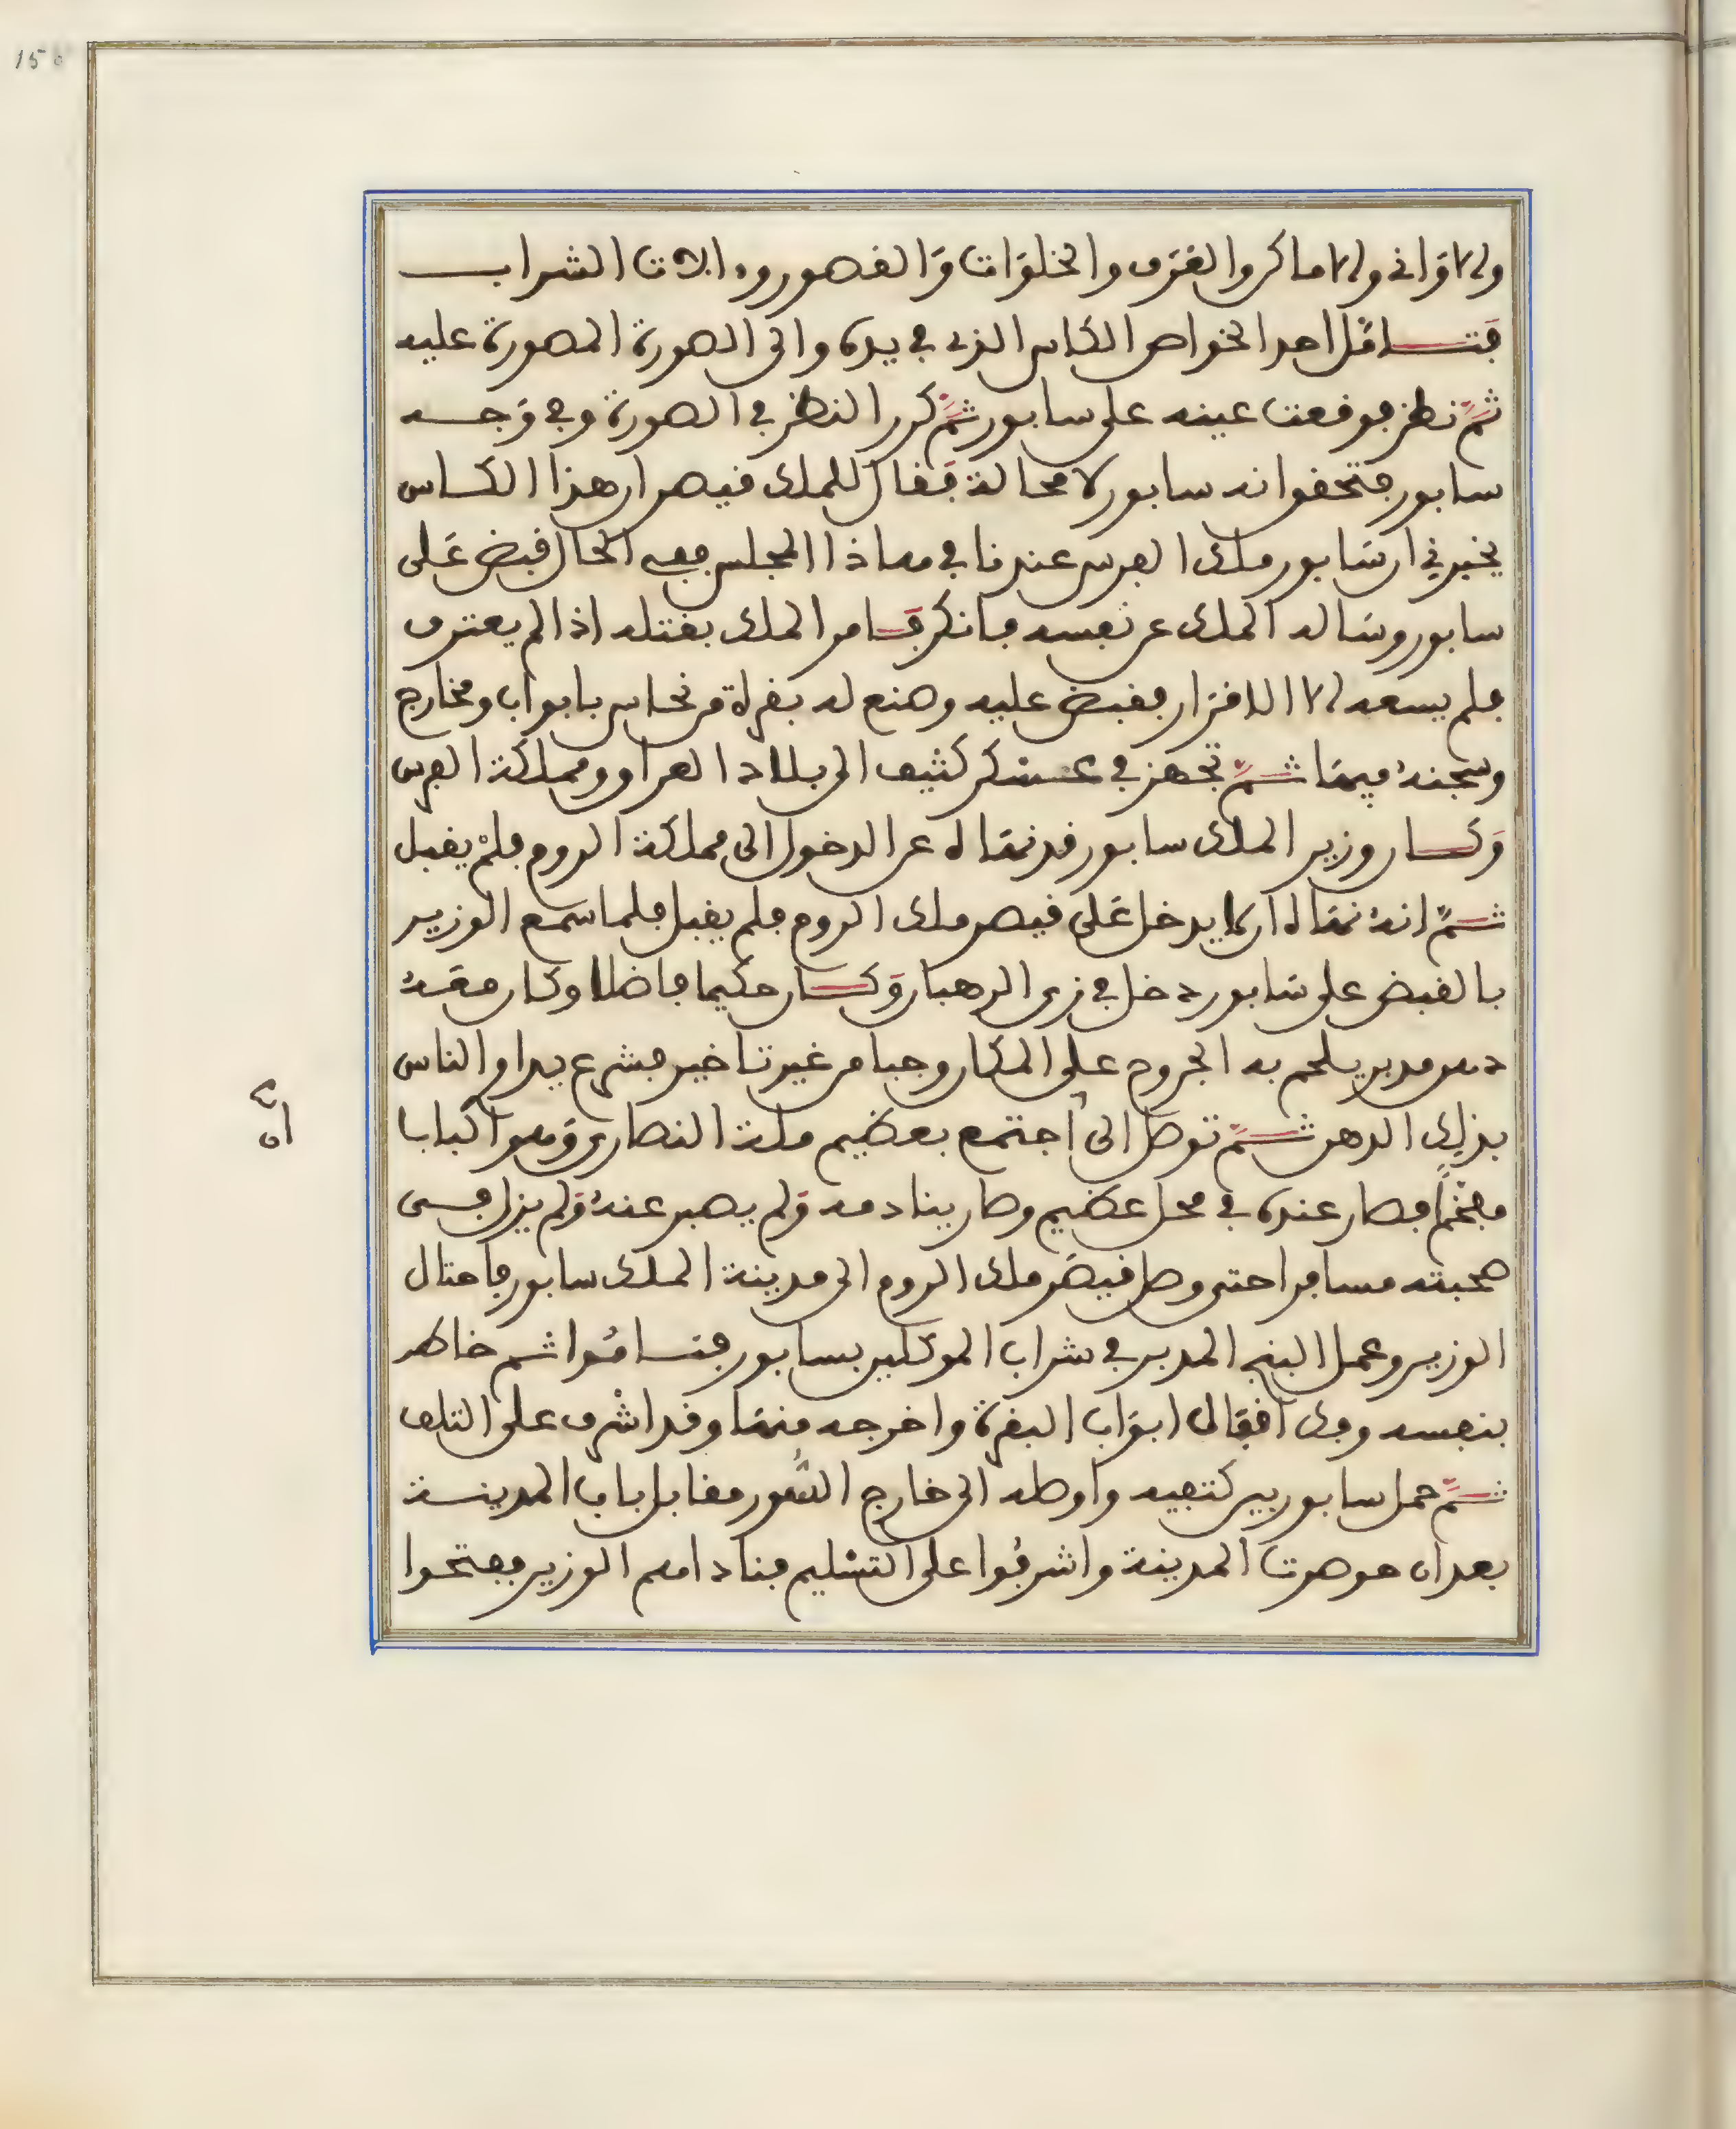 156
والاوانى والاماكن والغرف والخلوات والقصور وءالات الشراب
فتامل احد الخواص الكاس الذى فى يده والى الصورة المصورة عليه
ثم نظر فوقعت عينه على سابور ثم كرر النظر فى الصورة وفى وجه
سابور فتحقق انه سابور لا محالة فقال للملك قيصر ان هذا الكاس
يخبرنى ان سابور ملك الفرس عندنا فى هاذا المجلس ففى الحال قبض على
سابور وساله الملك عن نفسه فانكر فامر الملك بقتله اذا لم يعترف
فلم يسعه الا الاقرار فقبض عليه وصنع له بقرة من نحاس بابواب ومخارج
وسجنه فيها ثم تجهز فى عسكر كثيف الى بلاد العراق ومملكة الفرس
وكان وزير الملك سابور قد نهاه عن الدخول الى مملكة الروم فلم يقبل
ثم انه نهاه ان لا يدخل على قيصر ملك الروم فلم يقبل فلما سمع الوزير
بالقبض على سابور دخل فى زى الرهبان وكان حكيما فاضلا وكان معه
دهن مدبر يلحم به الجروح على المكان وحيا من غير تاخير فشرع يداو الناس
بذلك الدهن ثم توصل الى اجتمع بعظيم ملة النصارى وهو البابا
فصار عنده فى محل عظيم وصار ينادمه ولم يصبر عنه ولم يزل فى
صحبته مسافرا حتى وصل قيصر ملك الروم الى مدينة الملك سابور فاحتال
الوزير وعمل البنج المدبر فى شراب الموكلين بسابور فناموا ثم خاطر
بنفسه وفك اقفال ابواب البقرة واخرجه منها وقد اشرف على التلف
ثم حمل سابور بين كتفيه واوصله الى خارج السور مقابل باب المدينة
بعد ان حوصرت المدينة واشرفوا على التسليم فناداهم الوزير ففتحوا